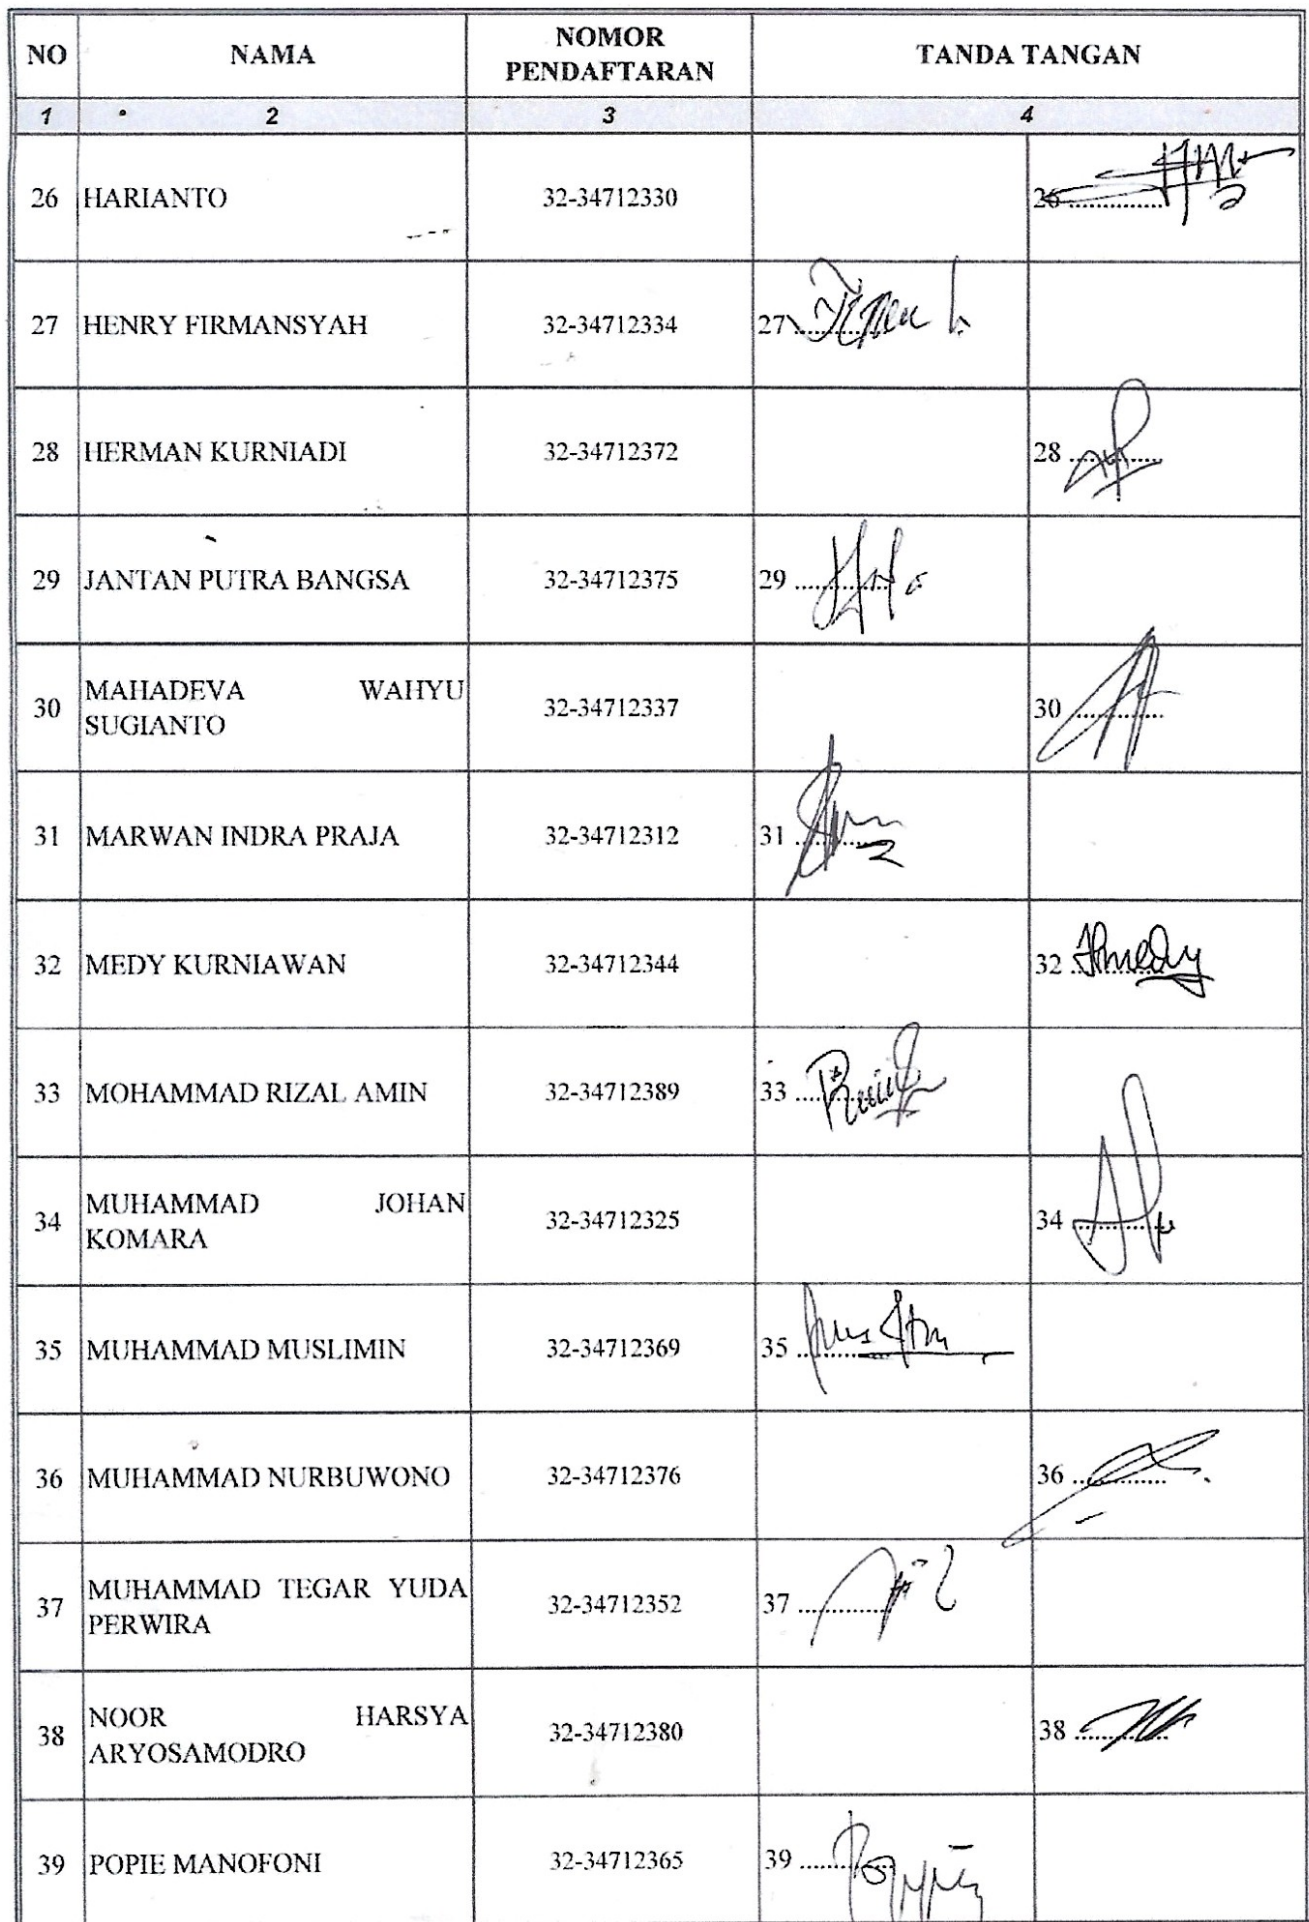 NO NAMA NOMOR PENDAFTARAN TANDA TANGAN
1 2 3 4
26 HARIANTO 32-34712330 26 ...............
27 HENRY FIRMANSYAH 32-34712334 27 ...............
28 HERMAN KURNIADI 32-34712372 28 ...............
29 JANTAN PUTRA BANGSA 32-34712375 29 ...............
30 MAHADEVA WAHYU
SUGIANTO 32-34712337 30 ...............
31 MARWAN INDRA PRAJA 32-34712312 31 ...............
32 MEDY KURNIAWAN 32-34712344 32 ...............
33 MOHAMMAD RIZAL AMIN 32-34712389 33 ...............
34 MUHAMMAD JOHAN
KOMARA 32-34712325 34 ...............
35 MUHAMMAD MUSLIMIN 32-34712369 35 ...............
36 MUHAMMAD NURBUWONO 32-34712376 36 ...............
37 MUHAMMAD TEGAR YUDA
PERWIRA 32-34712352 37 ...............
38 NOOR HARSYA
ARYOSAMODRO 32-34712380 38 ...............
39 POPIE MANOFONI 32-34712365 39 ...............